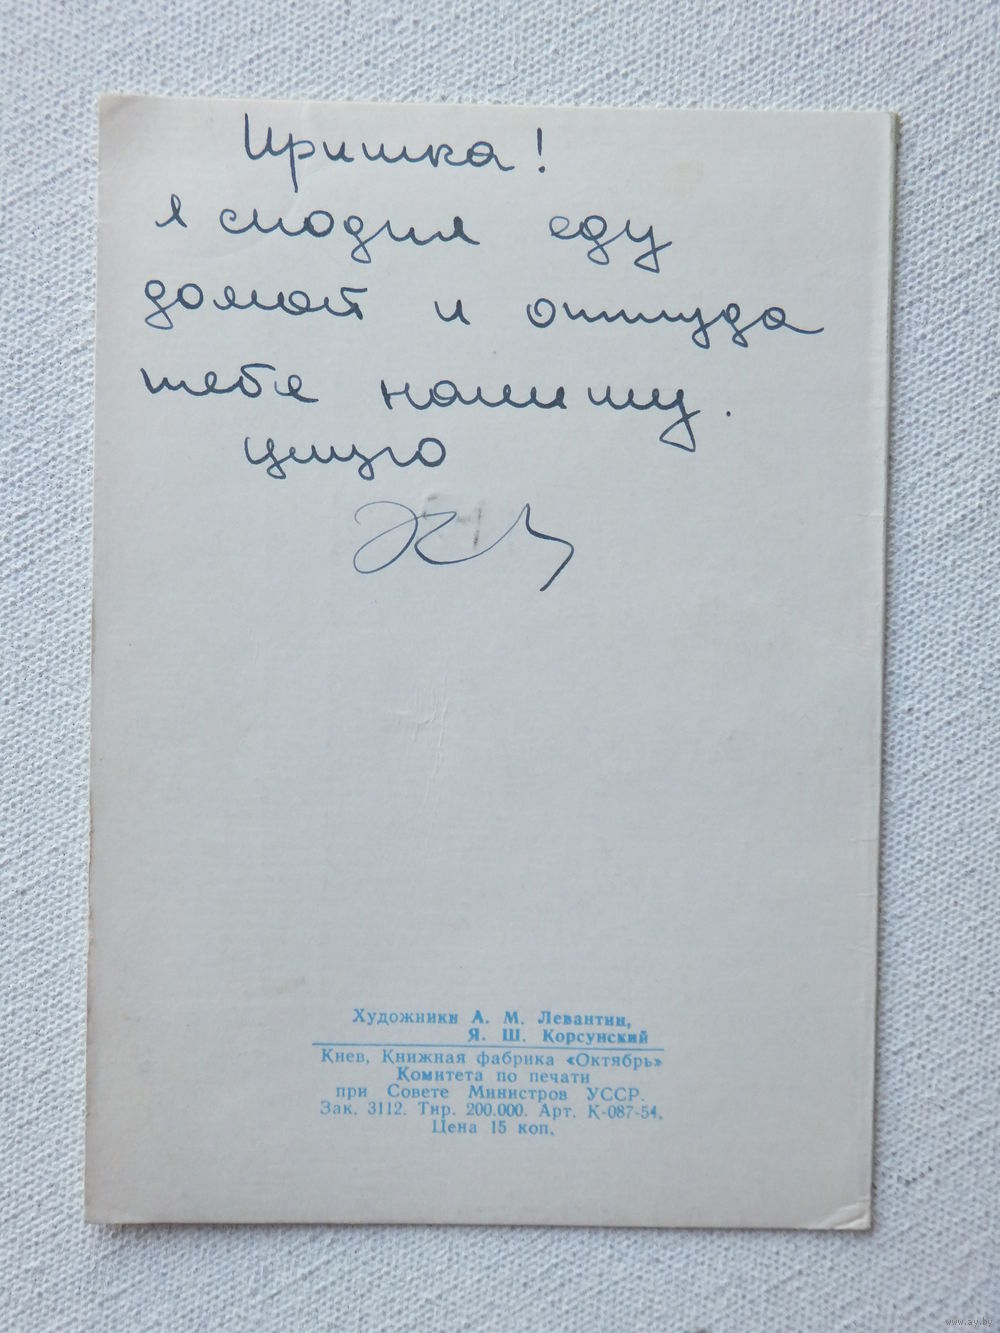 Иришка!
я сходил еду
домой и оттуда
тебе напишу.
целую
Художники А. М. Левантин,
Я. Ш. Корсунский
Киев, Книжная фабрика «Октябрь»
Комитета по печати
при Совете Министров УССР.
Зак. 3112. Тир. 200.000. Арт. К-087-54.
Цена 15 коп.
www.ay.by